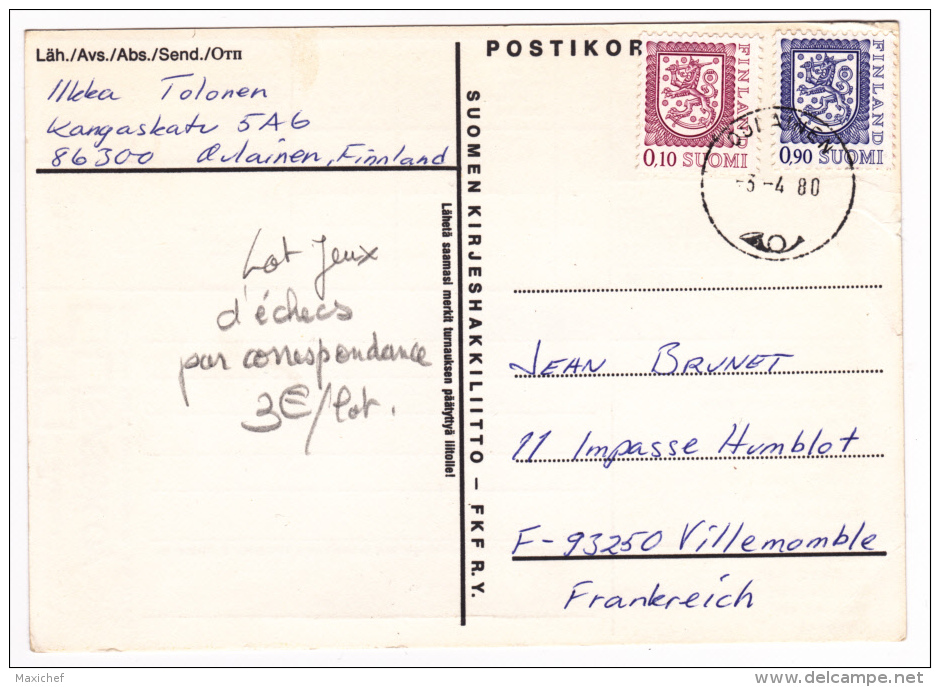 Läh./Avs./Abs./Send./Отп
Ilkka Tolonen
Kangaskatu 5A6
86300 Oulainen, Finnland
POSTIKOR
0,10 SUOMI
FINLAND
0,90 SUOMI
FINLAND
-3-4 80
SUOMEN KIRJESHAKKILIITTO – FKF R.Y.
Lähetä saamasi merkit turnauksen päätyttyä liitolle!
Lot Jeux
d'échecs
par correspondance
3€/lot.
JEAN BRUNET
11 Impasse Humblot
F-93250 Villemomble
Frankreich
Maxichef
www.delcampe.net